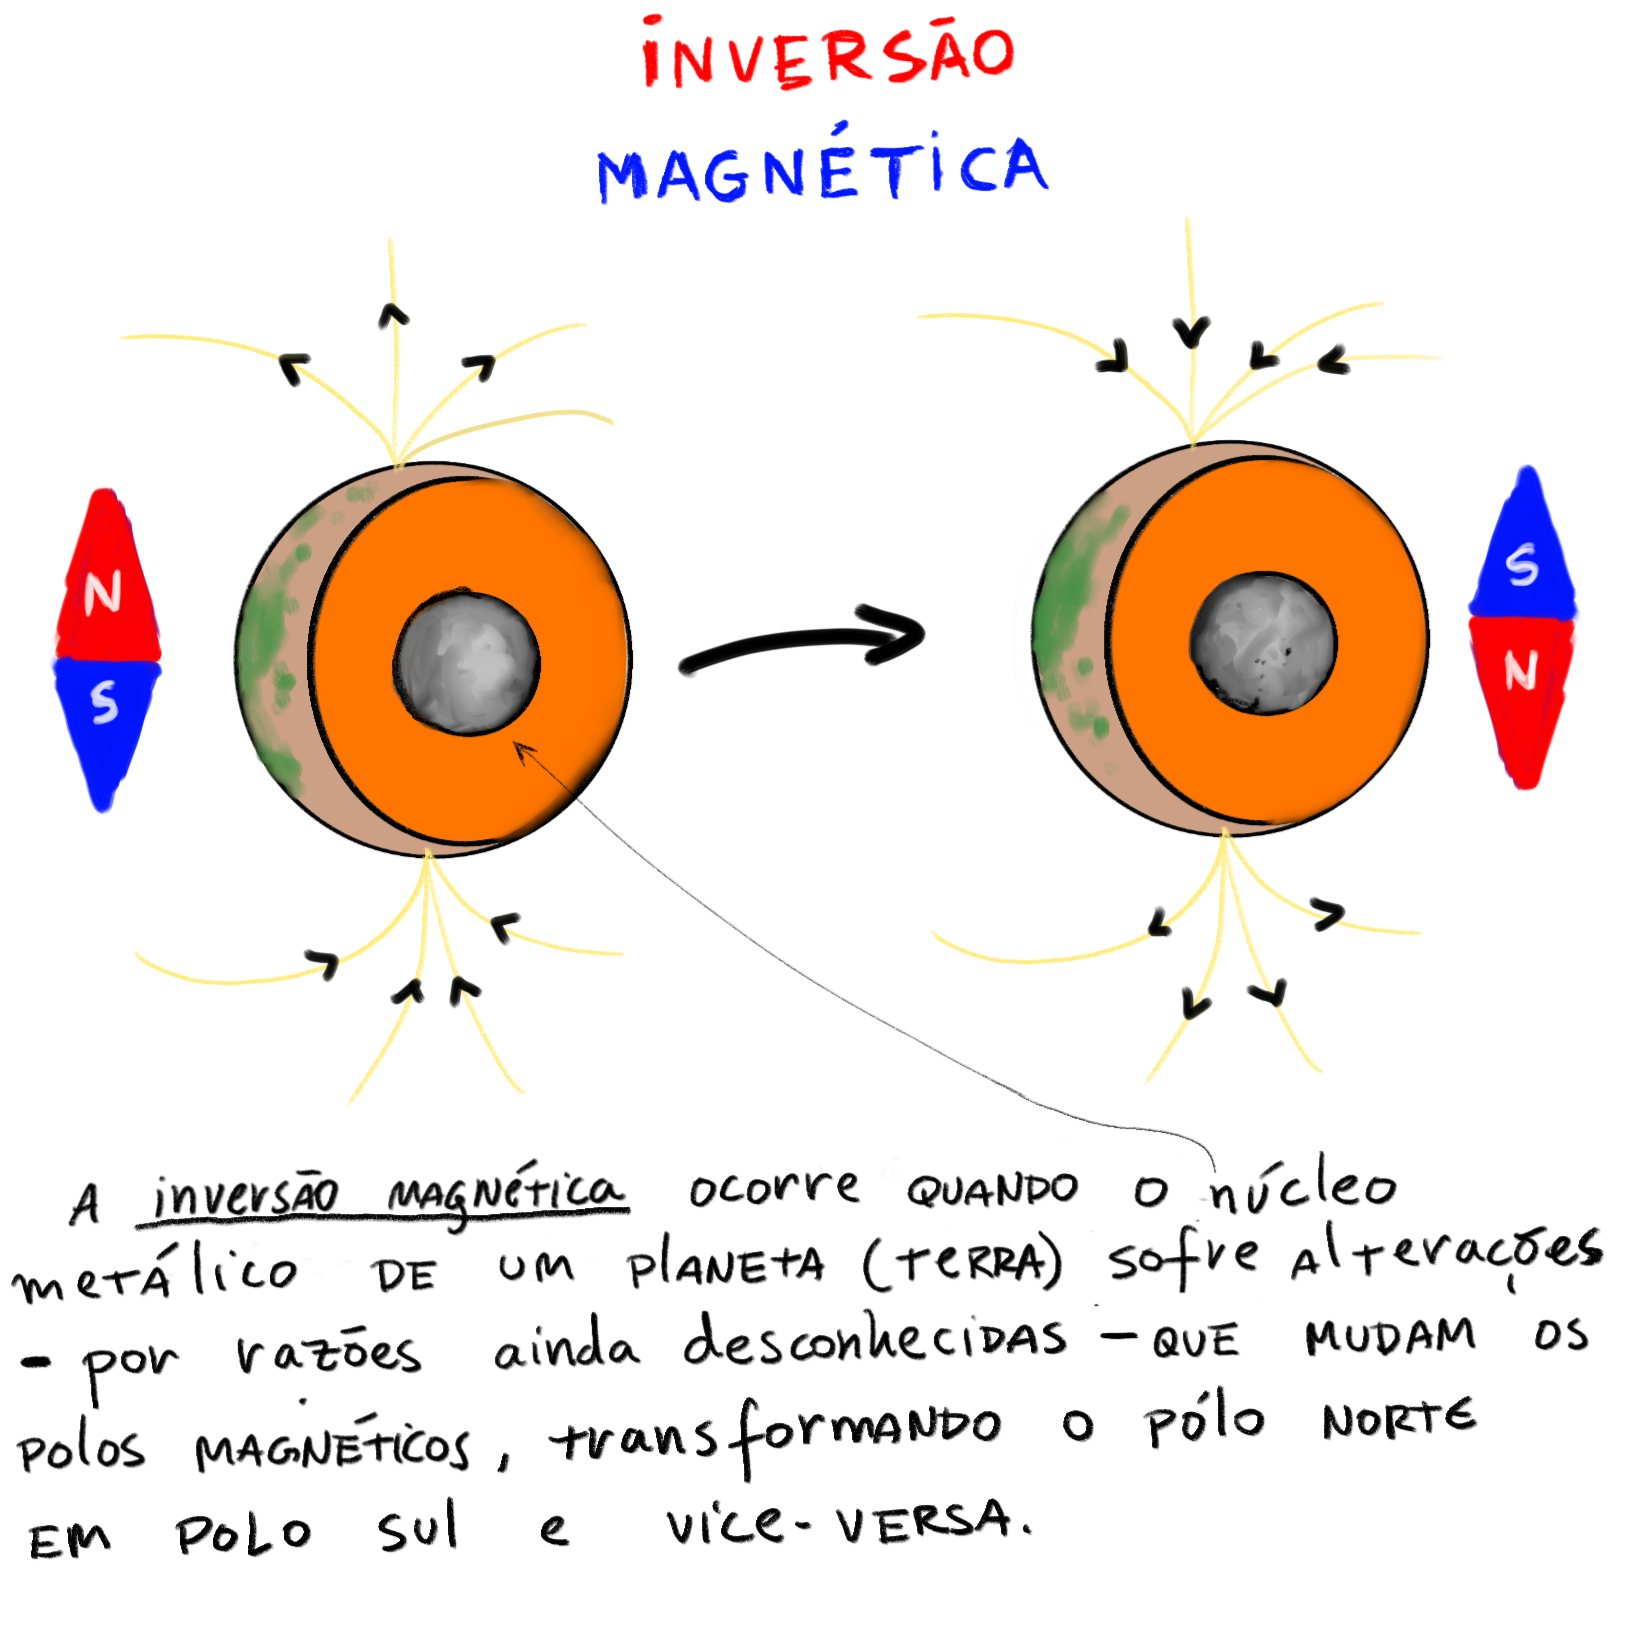 INVERSÃO
MAGNÉTICA
N
S
S
N
A inversão MAGNÉTICA ocorre QUANDO O núcleo
metálico DE UM PLANETA (TERRA) sofre Alterações
- por razões ainda desconheciDAS - QUE MUDAM OS
polos MAGNÉTICOS, transformANDO O pólo NORTE
EM POLO SUL e vice-VERSA.